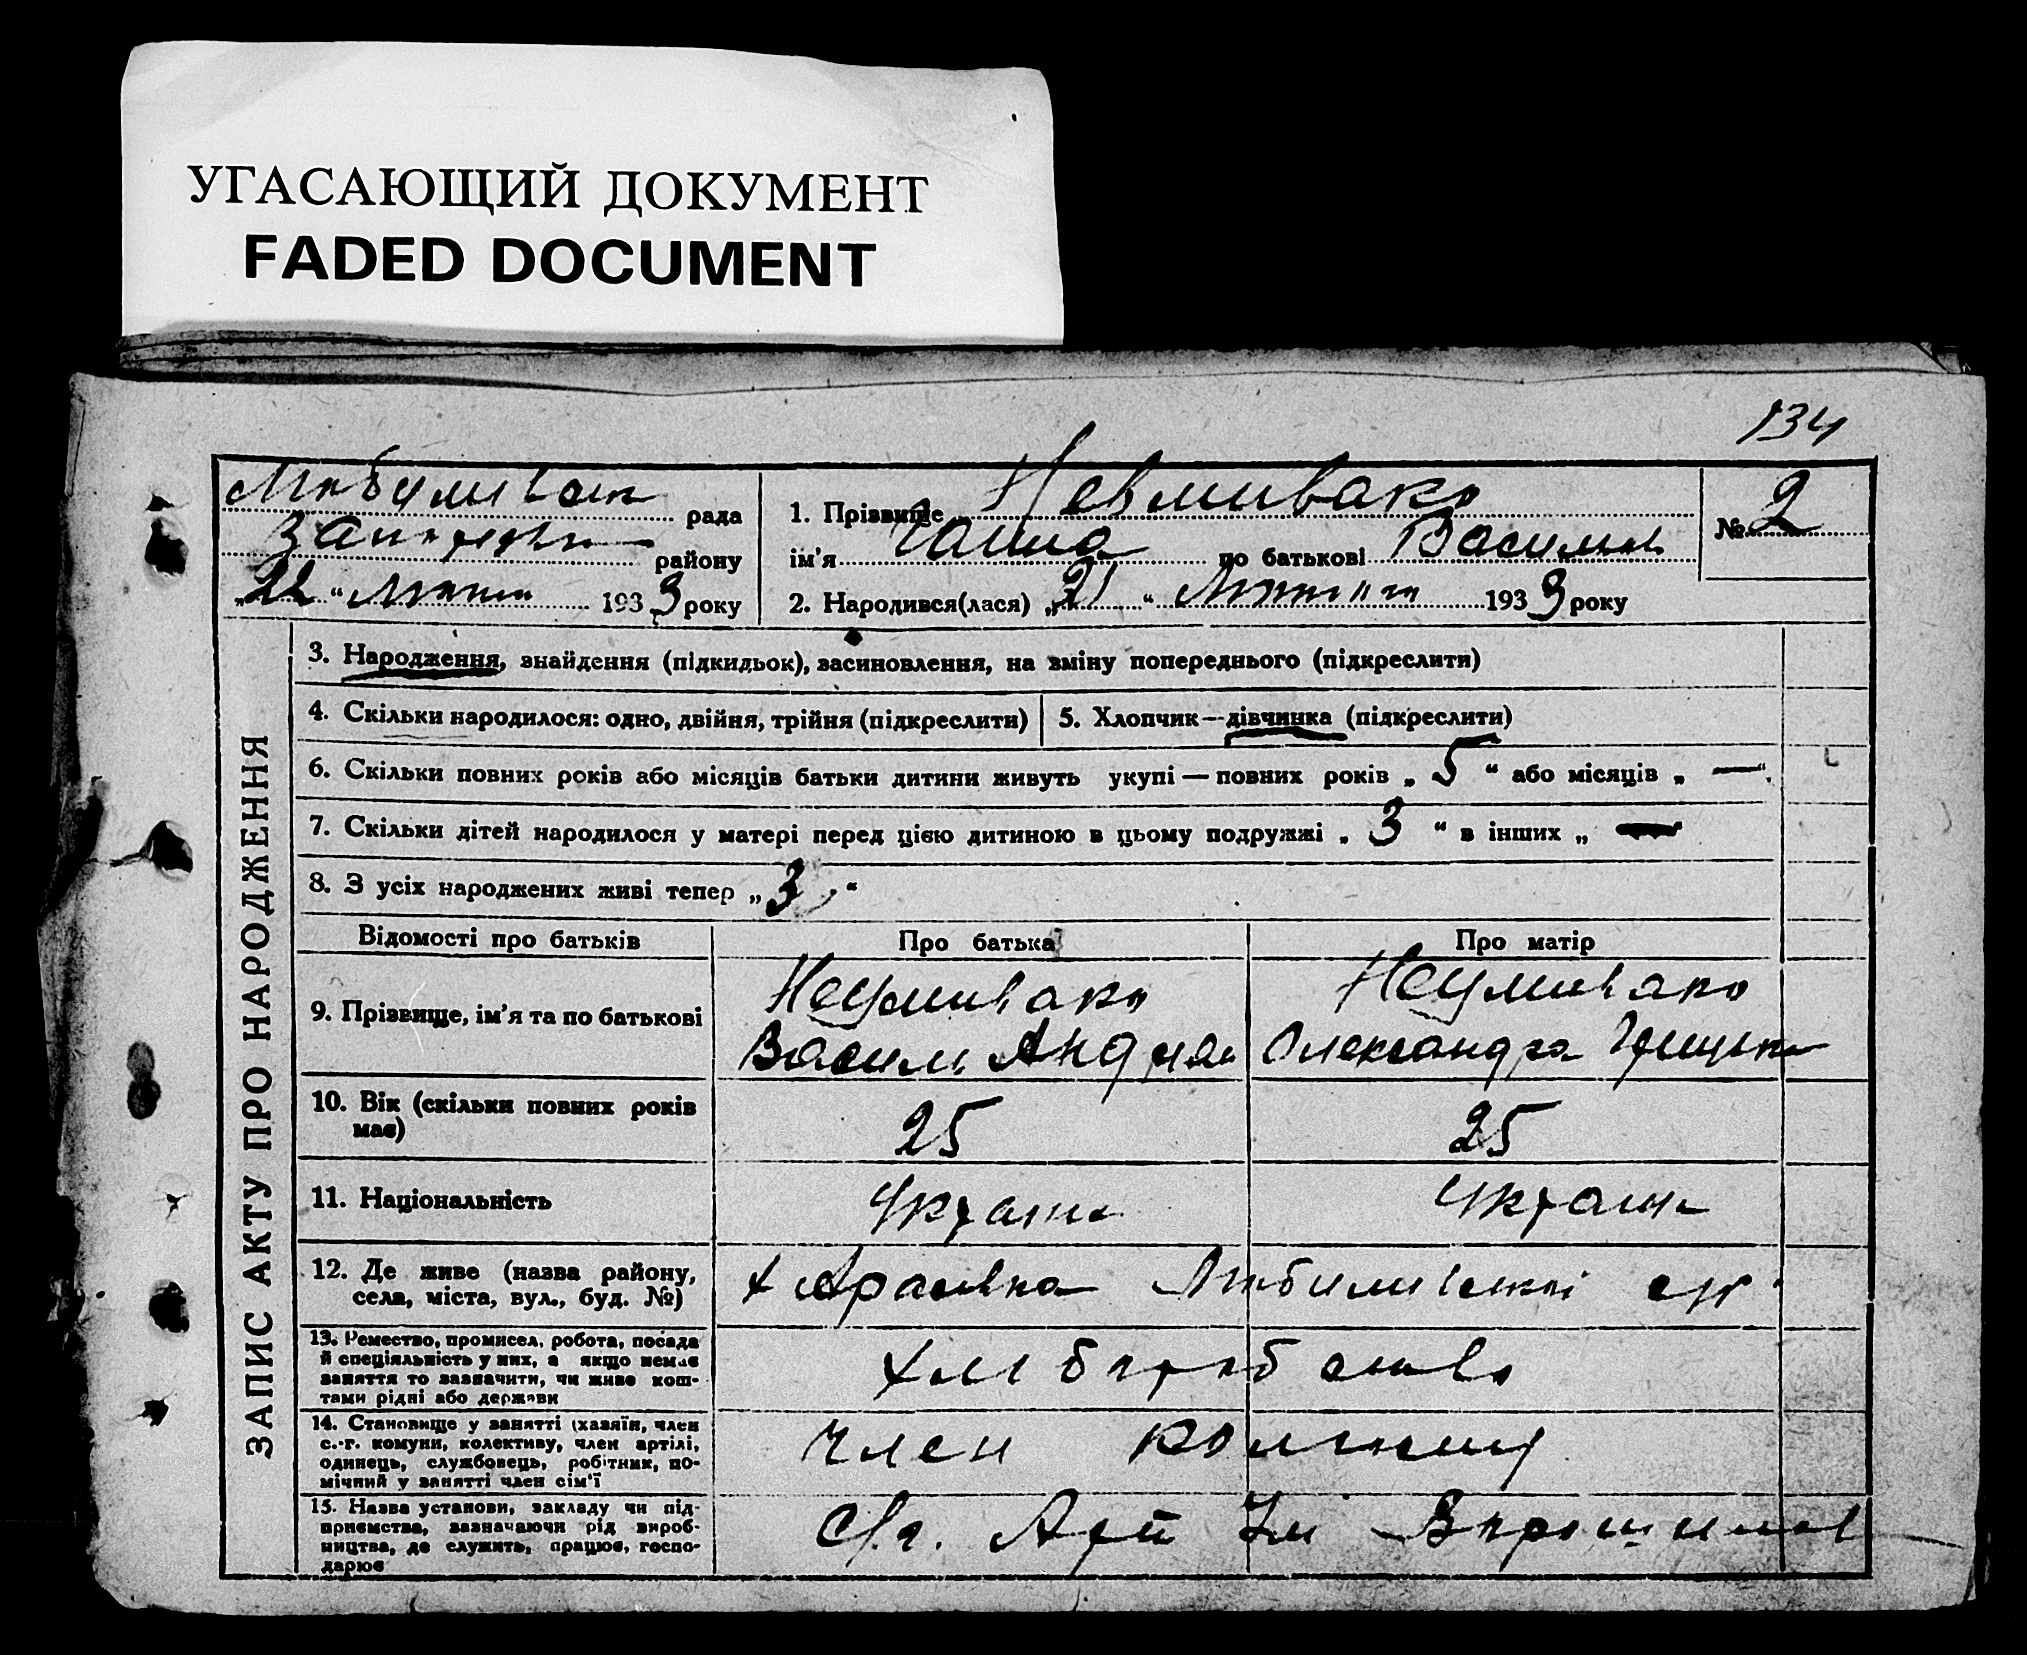 УГАСАЮЩИЙ ДОКУМЕНТ
FADED DOCUMENT
134
рада
району
„22“ 1933 року
1. Прізвище Невмивако
ім'я Ганна по батькові Васил
2. Народився(лася) „21“ 1933 року
№ 2
ЗАПИС АКТУ ПРО НАРОДЖЕННЯ
3. Народження, знайдення (підкидьок), засиновлення, на зміну попереднього (підкреслити)
4. Скільки народилося: одно, двійня, трійня (підкреслити)
5. Хлопчик—дівчинка (підкреслити)
6. Скільки повних років або місяців батьки дитини живуть укупі — повних років „ 5 “ або місяців „ — “.
7. Скільки дітей народилося у матері перед цією дитиною в цьому подружжі „ 3 “ в інших „ — “
8. З усіх народжених живі тепер „ 3 “
Відомості про батьків
Про батька
Про матір
9. Прізвище, ім'я та по батькові
Неумивако
Василь Андр
Неумивако
Олександра
10. Вік (скільки повних років має)
25
25
11. Національність
Украин
Украин
12. Де живе (назва району, села, міста, вул., буд. №)
х
13. Ремество, промисел, робота, посада й спеціяльність у них, а якщо немає заняття то зазначити, чи живе коштами рідні або держави
хліборобство
14. Становище у занятті (хазяїн, член с.-г. комуни, колективу, член артілі, одинець, службовець, робітник, помічний у занятті член сім'ї
член колгоспу
15. Назва установи, закладу чи підприємства, зазначаючи рід виробництва, де служить, працює, господарює
С/г. Арт Ім Ворошилов